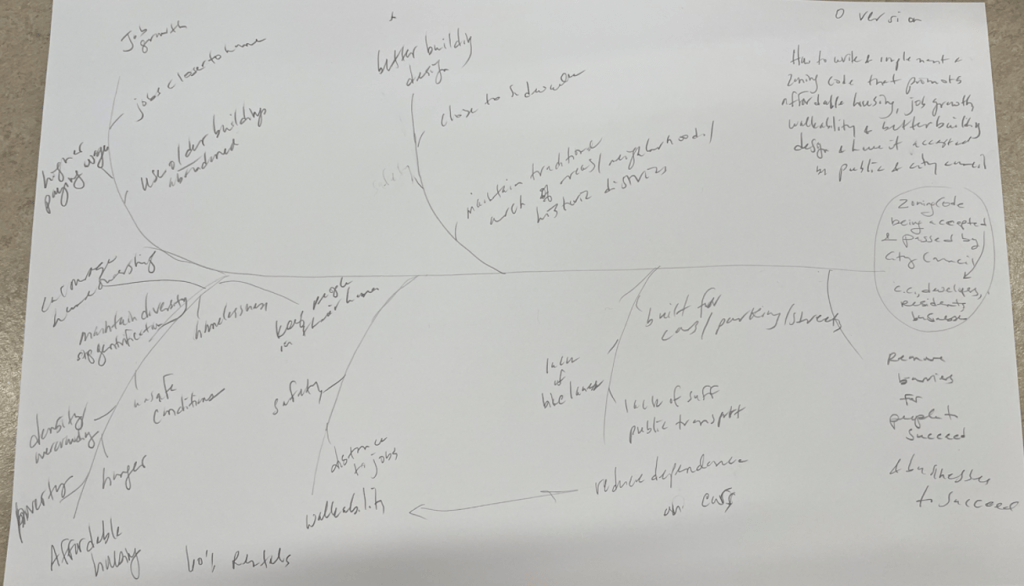 O version
How to write & implement a
zoning code that promotes
affordable housing, job growth
walkability & better building
design & have it accepted
by public & city council
Job
growth
jobs closer to home
higher
paying wage
use older buildings
abandoned
better building
design
close to sidewalk
safety
maintain traditional
arch of areas/neighborhoods/
historic districts
zoning code
being accepted
& passed by
City Council
c.c., developers,
residents
businesses
encourage
homeownership
maintain diversity
gentrification
homelessness
keep people
in their home
unsafe
conditions
density
overcrowding
hunger
poverty
Affordable
housing
60% Rentals
safety
distance
to jobs
walkability
built for
cars/parking/streets
lack
of
bike lanes
lack of suff
public transptt
reduce dependence
on cars
Remove
barriers
for
people to
succeed
& businesses
to succeed